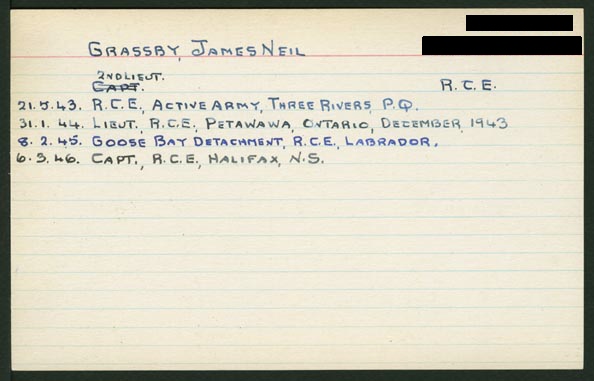 GRASSBY, JAMES NEIL
2ND LIEUT.
CAPT. R.C.E.
21.5.43. R.C.E., ACTIVE ARMY, THREE RIVERS, P.Q.
31.1.44. LIEUT., R.C.E., PETAWAWA, ONTARIO, DECEMBER, 1943
8.2.45. GOOSE BAY DETACHMENT, R.C.E., LABRADOR.
6.3.46. CAPT., R.C.E., HALIFAX, N.S.